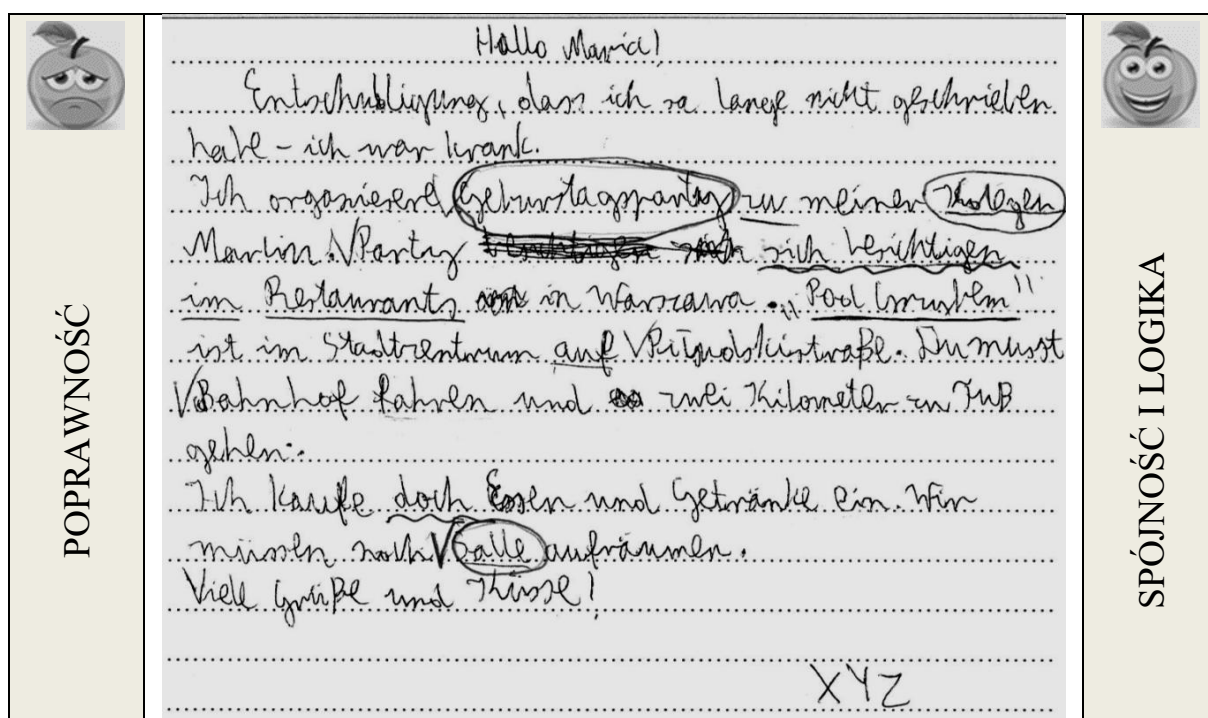 POPRAWNOŚĆ
Hallo Maria!
Entschubligung, dass ich so lange nicht geschrieben
habe - ich war krank.
Ich organisiere Geburstagsparty zu meiner Kolegen
Martin. Party sich besichtigen
im Restaurants in Warszawa. "Pod
ist im Stadtzentrum auf Piłsudskistraße. Du musst
Bahnhof fahren und zwei Kilometer zu Fuß
gehen.
Ich kaufe doch Essen und Getränke ein. Wir
müssen noch Salle aufräumen.
Viele Grüße und Küsse!
XYZ
SPÓJNOŚĆ I LOGIKA